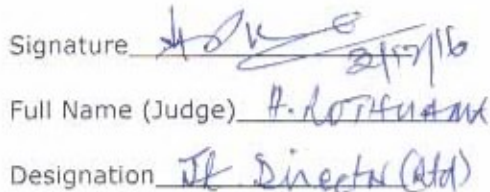 Signature
2/12/16
Full Name (Judge)
Designation Jt. Director (Rtd)